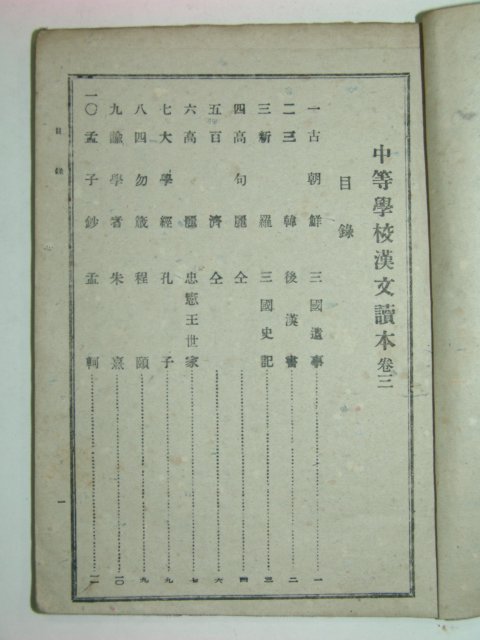 中等學校漢文讀本 卷三
目錄
一 古朝鮮 三國遺事 一
二 三韓 後漢書 二
三 新羅 三國史記 三
四 高句麗 仝 四
五 百濟 仝 六
六 高麗 忠憲王世家 七
七 大學經 孔子 九
八 四勿箴 程頤 九
九 諭學者 朱熹 一〇
一〇 孟子鈔 孟軻 一一
目錄
一